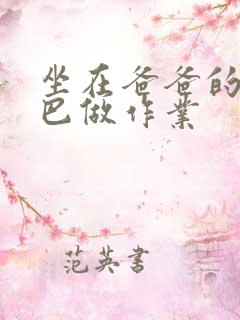 坐在爸爸的
巴做作业
范英书